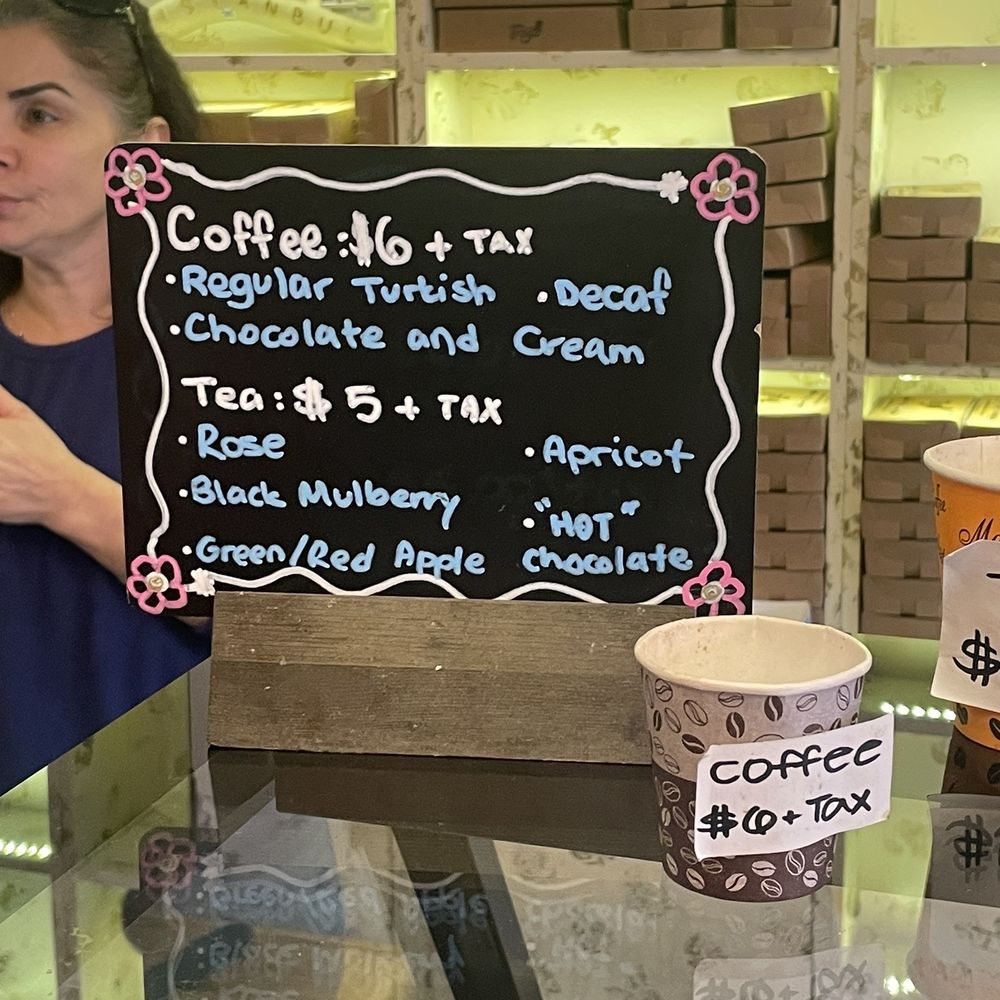 ISTANBUL
Coffee: $6 + TAX
• Regular Turtish • Decaf
• Chocolate and Cream
Tea: $5 + TAX
• Rose • Apricot
• Black Mulberry • "HOT"
• Green/Red Apple chocolate
coffee
$6 + Tax
$